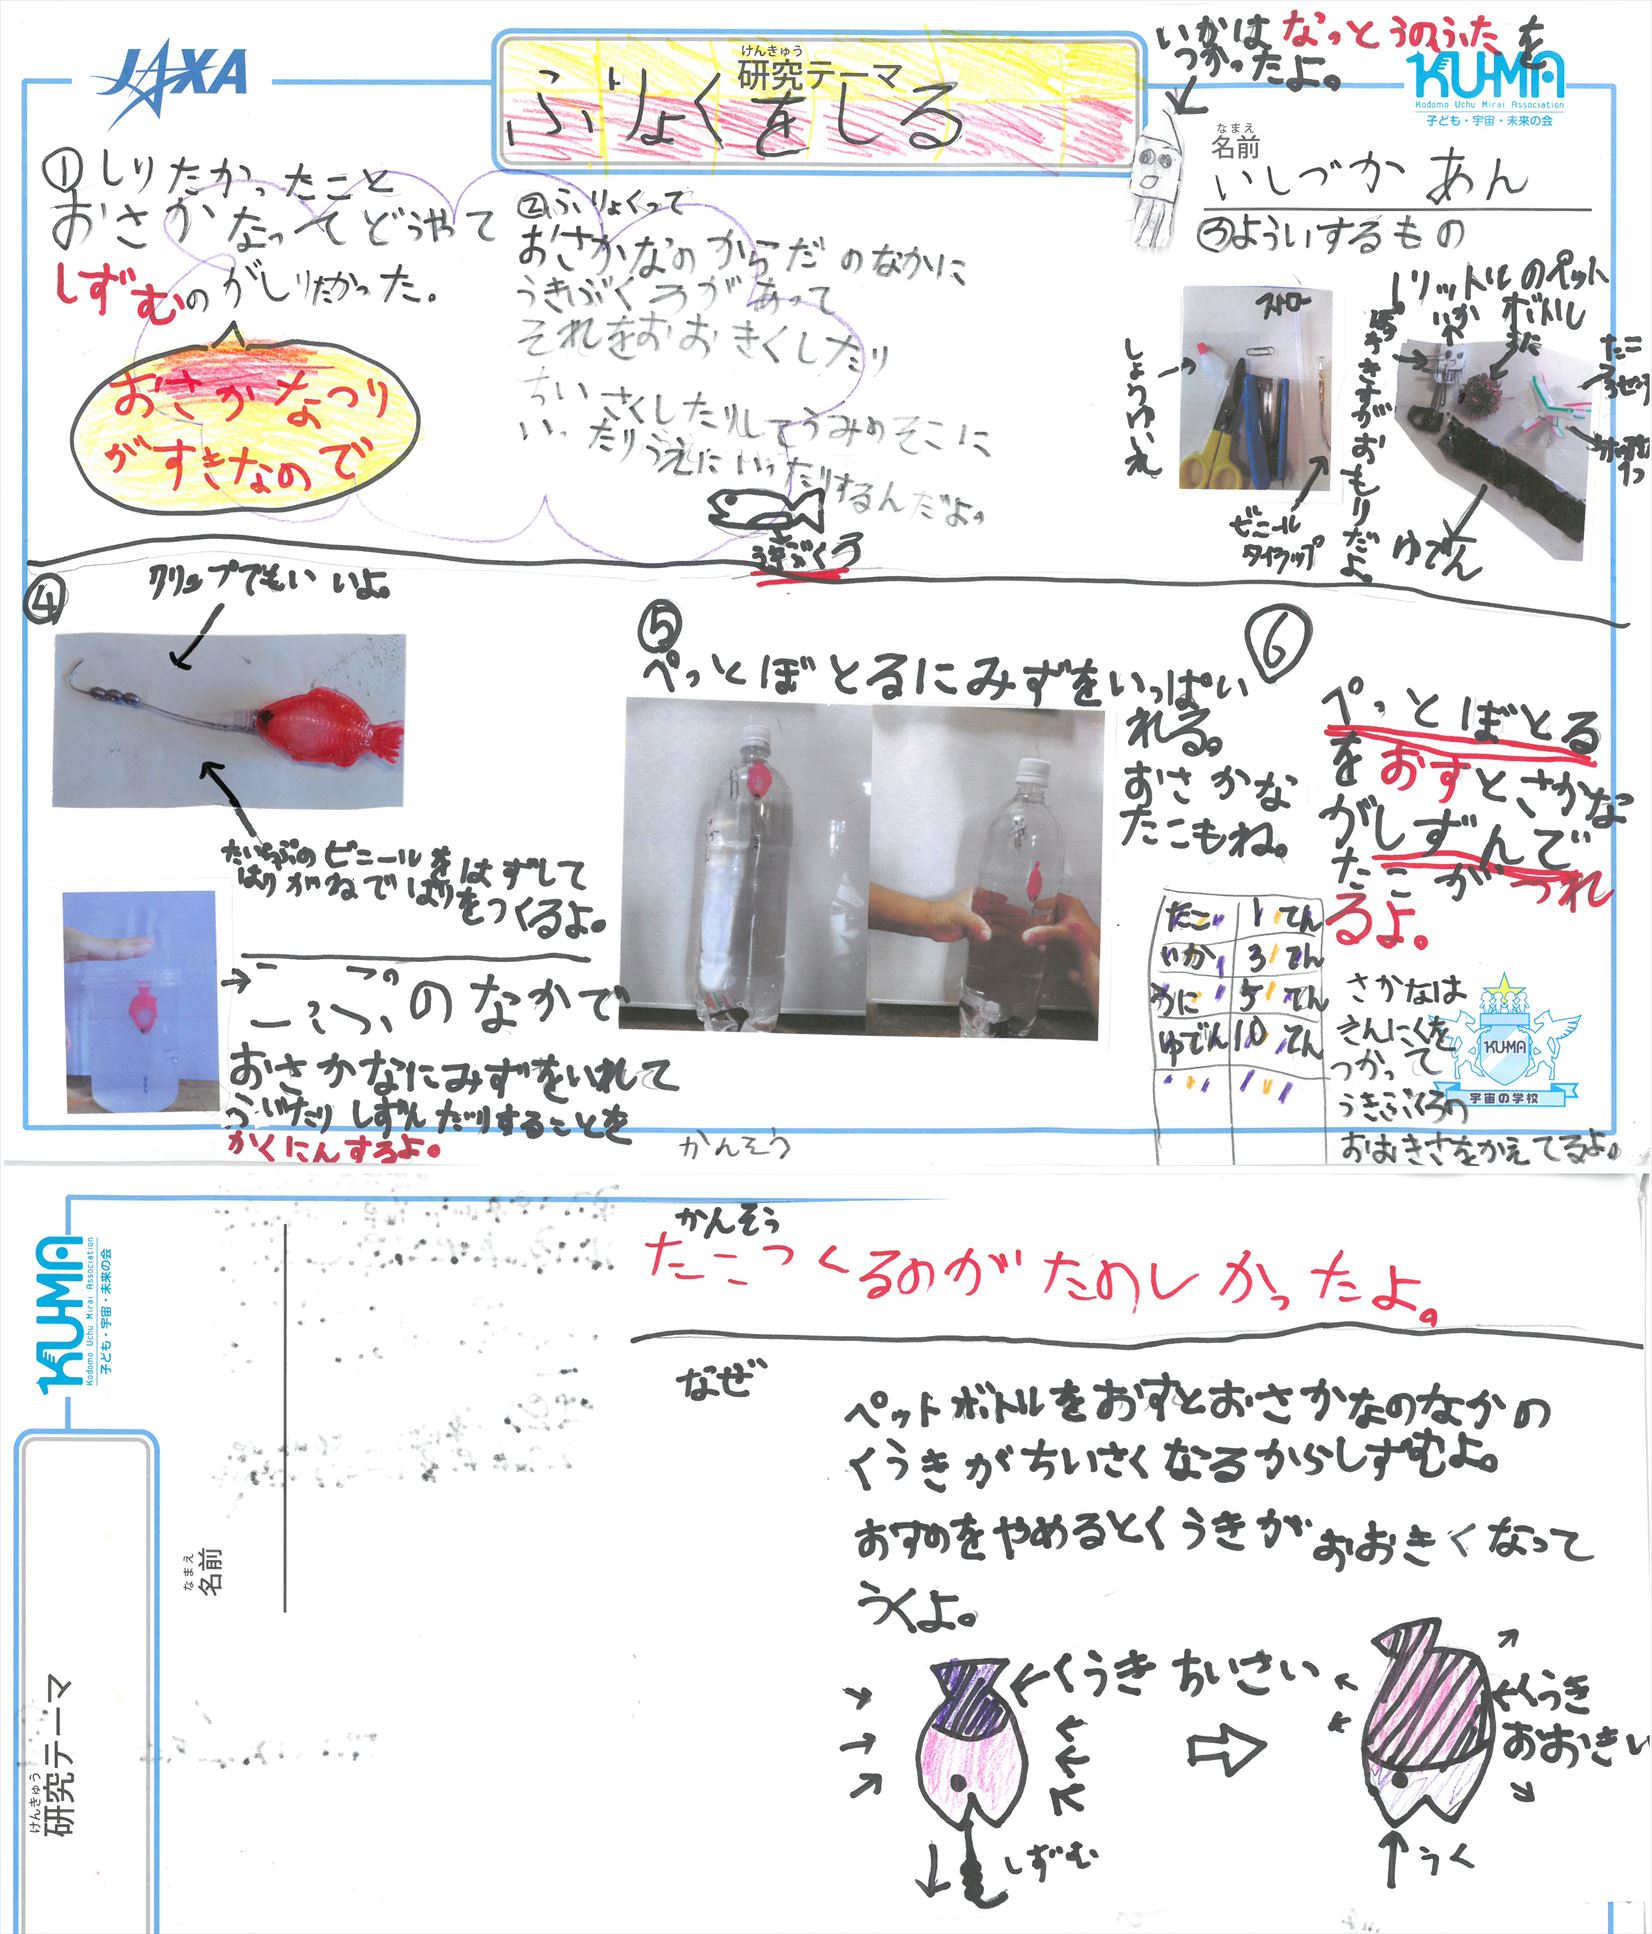 JAXA
けんきゅう
研究テーマ
ふりょくをしる
いかはなっとうのふたを
つかったよ。
KU-MA
Kodomo Uchu Mirai Association
子ども・宇宙・未来の会
なまえ
名前
いしづか あん
①しりたかったこと
おさかなってどうやって
しずむのがしりたかった。
おさかなつり
がすきなので
②ふりょくって
おさかなのからだのなかに
うきぶくろがあって
それをおおきくしたり
ちいさくしたりしてうみのそこに
いったりうえにいったりするんだよ。
うきぶくろ
③よういするもの
ストロー
しょうゆいれ
ビニール
タイラップ
1リットルのペット
ボトル
いか
たこ
ゆでん
④
クリップでもいいよ。
たいらっぷのビニールをはずして
はりがねではりをつくるよ。
こっぷのなかで
おさかなにみずをいれて
ういたりしずんだりすることを
かくにんするよ。
⑤
ぺっとぼとるにみずをいっぱい
れる。
おさかな
たこもね。
⑥
ぺっとぼとる
をおすとさかな
がしずんで
たこがつれ
るよ。
たこ 1てん
いか 3てん
うに 5てん
ゆでん 10てん
さかなは
きんにくを
つかって
うきぶくろの
おおきさをかえてるよ。
KU-MA
宇宙の学校
かんそう
KU-MA
Kodomo Uchu Mirai Association
子ども・宇宙・未来の会
なまえ
名前
けんきゅう
研究テーマ
かんそう
たこつくるのがたのしかったよ。
なぜ
ペットボトルをおすとおさかなのなかの
くうきがちいさくなるからしずむよ。
おすのをやめるとくうきがおおきくなって
うくよ。
くうき ちいさい
しずむ
くうき
おおきい
うく